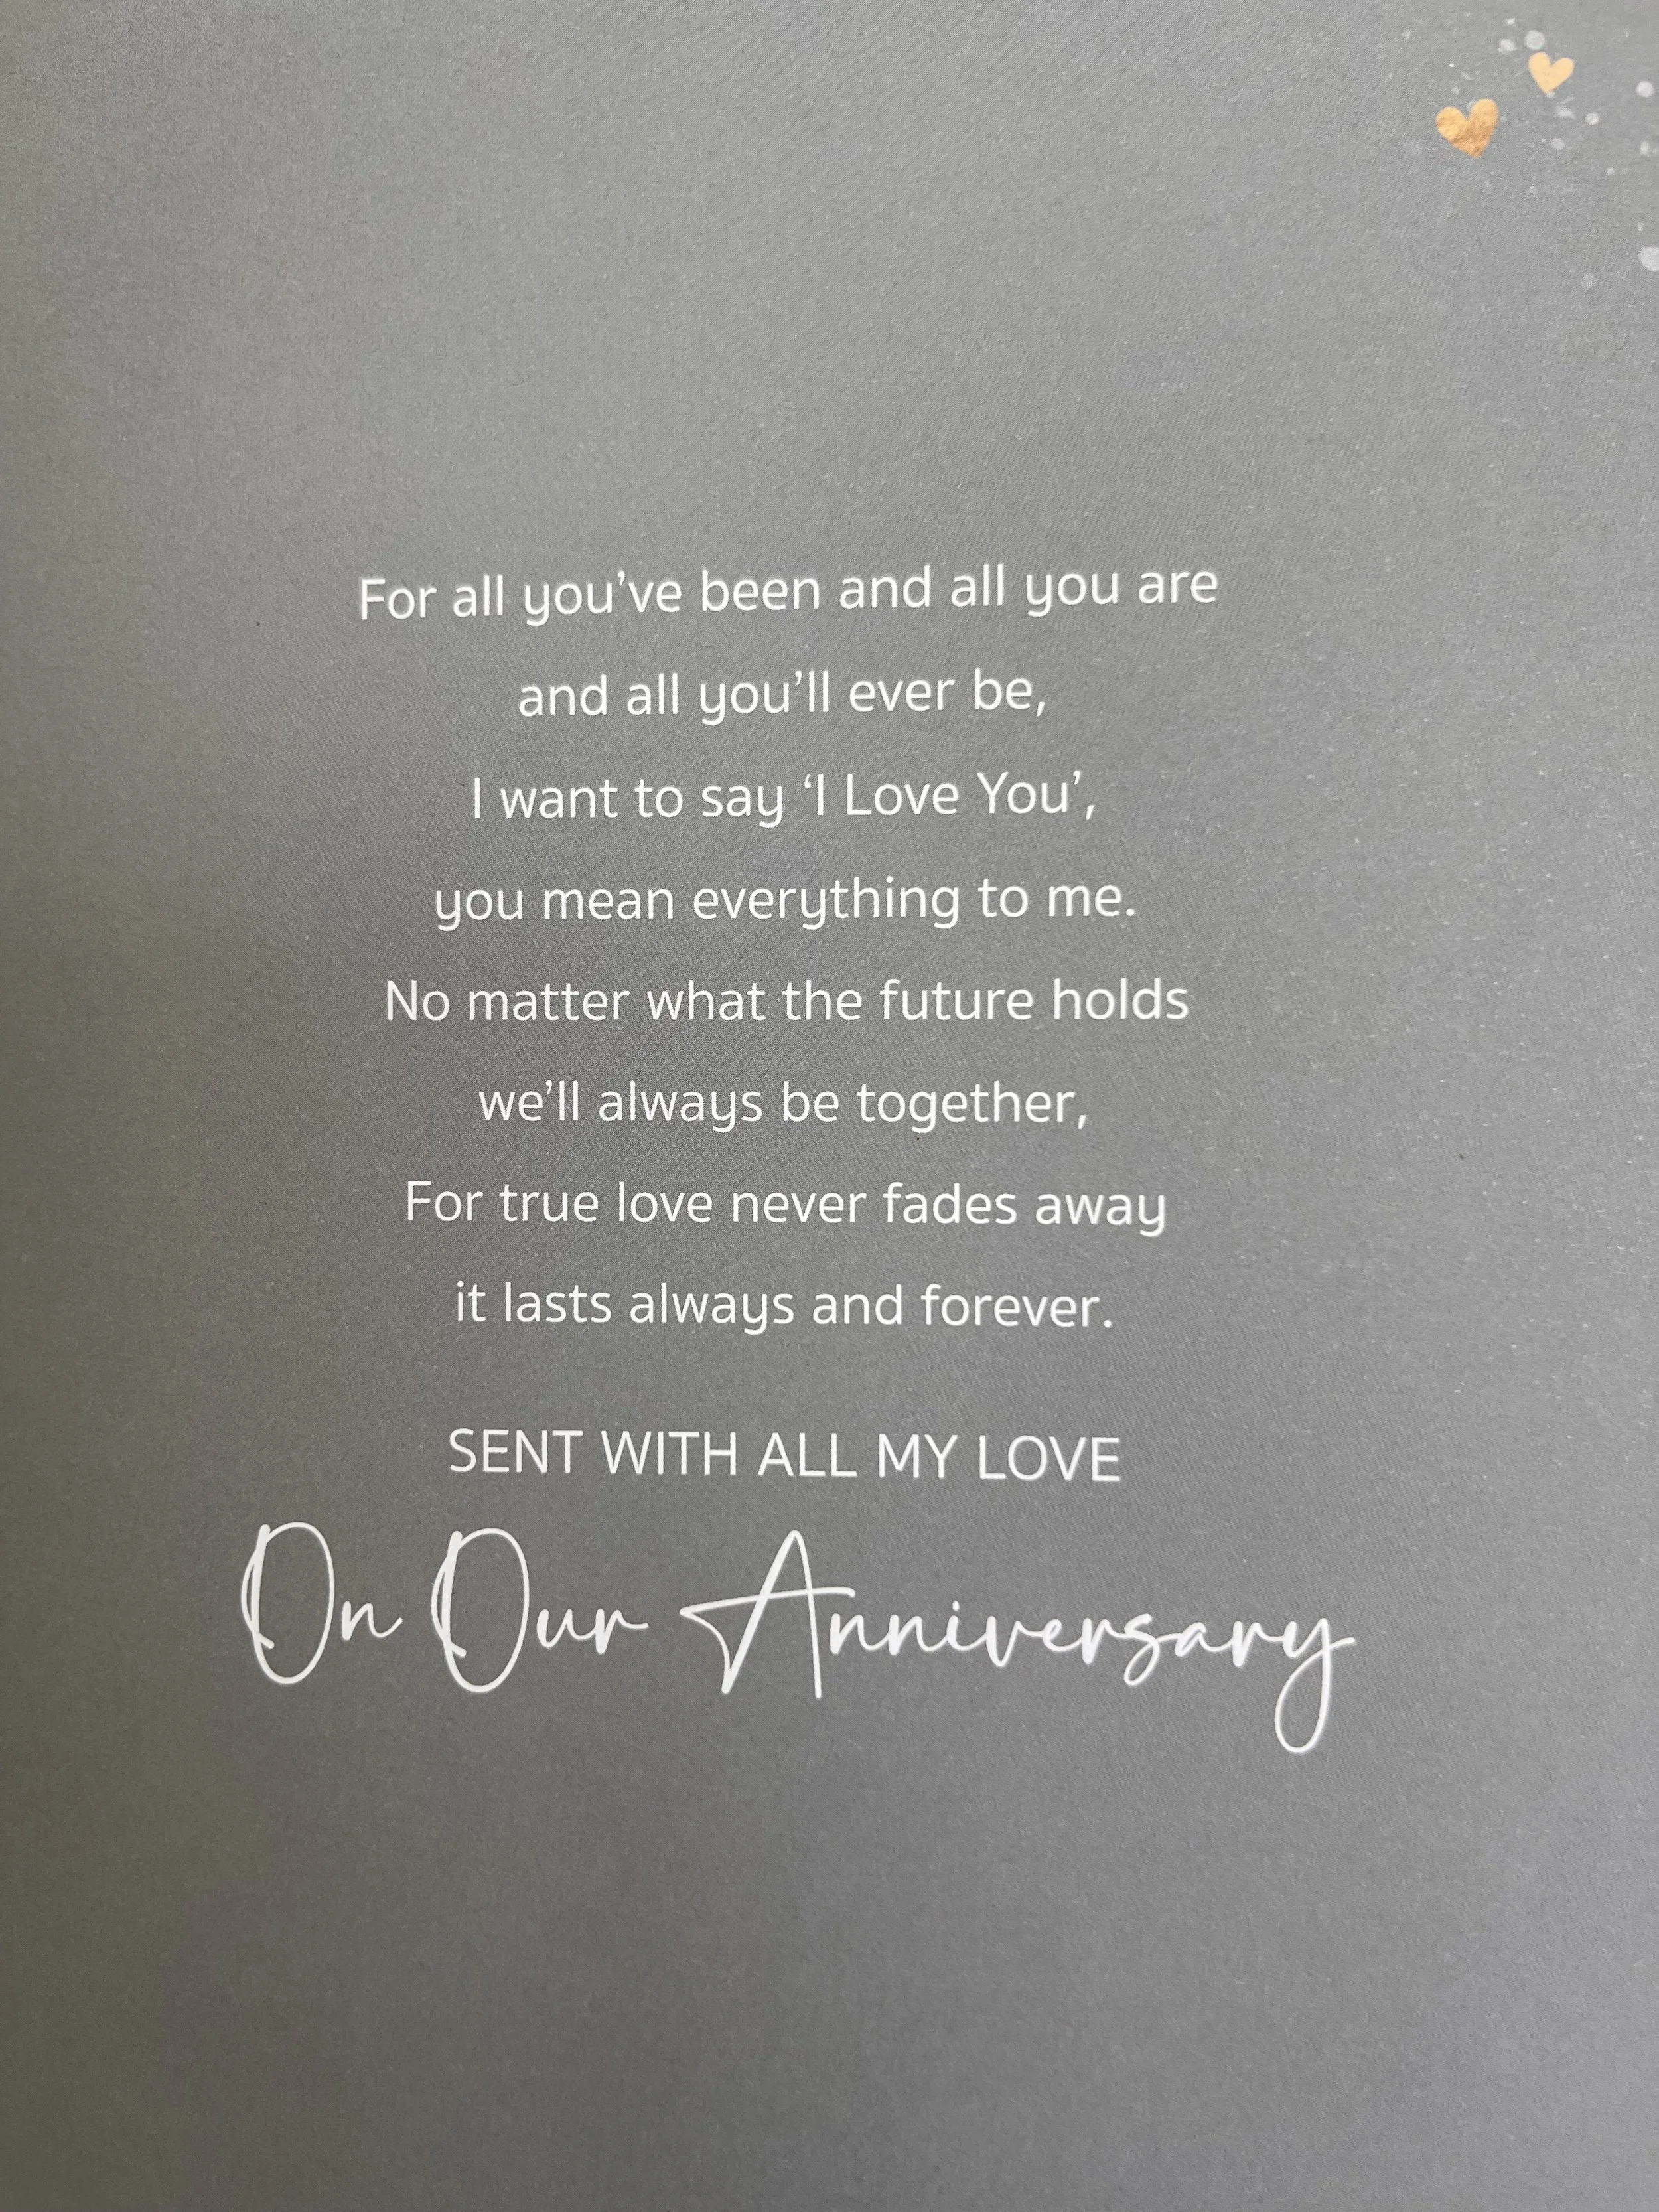 For all you’ve been and all you are
and all you’ll ever be,
I want to say ‘I Love You’,
you mean everything to me.
No matter what the future holds
we’ll always be together,
For true love never fades away
it lasts always and forever.
SENT WITH ALL MY LOVE
On Our Anniversary